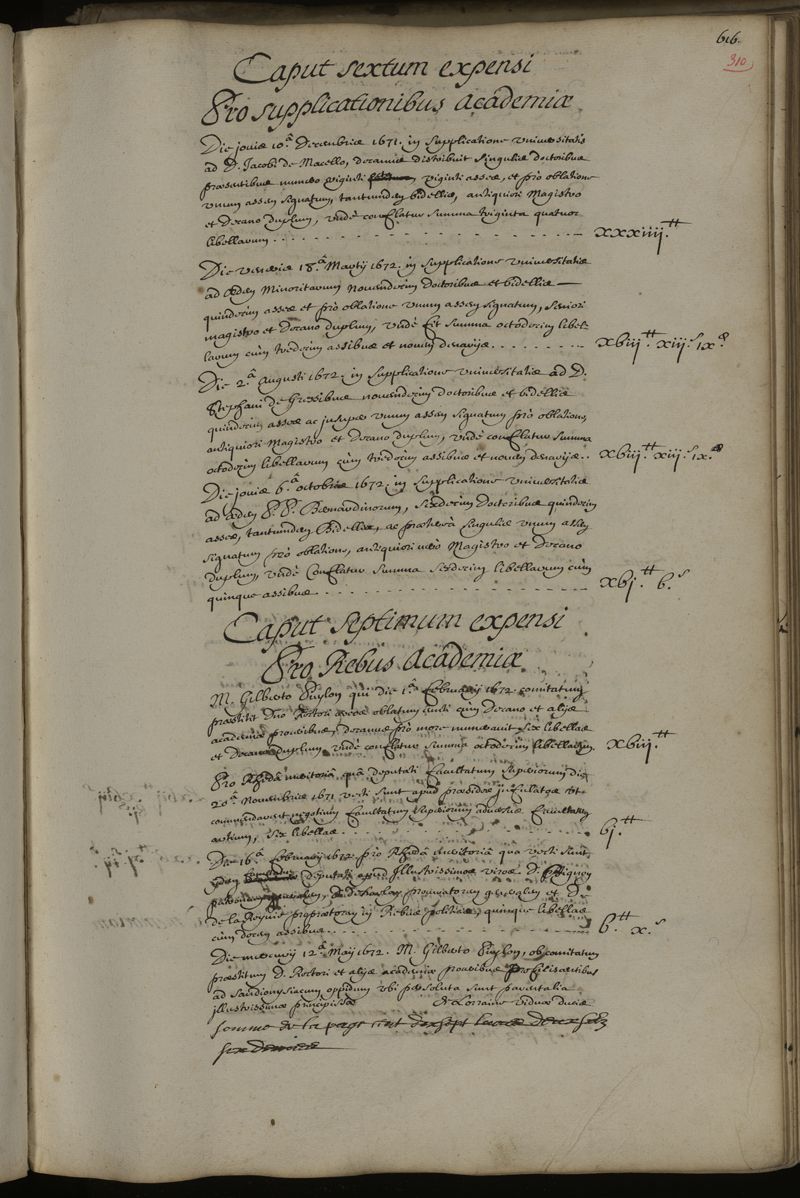 616.
310
Caput sextum expensi
Pro supplicationibus Academiæ
Die jovis 10.ª Decembris 1671. in supplicatione universitatis
ad D. Jacobi de Macello, decanus distribuit singulis doctoribus
præsentibus numero viginti viginti asses, et pro oblatione
unum assem signatum, tantumdem bidellis, antiquiori Magistro
et Decano duplum, undè conflatur summa triginta quatuor
libellarum xxxiiij.tt
Die veneris 18.ª Martij 1672. in supplicatione universitatis
ad Ædem Minoritarum novendecim Doctoribus et bidellis
quindecim asses et pro oblatione unum assem signatum, seniori
magistro et Decano duplum, undè fit summa octodecim libel-
larum cùm tredecim assibus et novem denarijs. xviij.tt xiij.s ix.d
Die 2.ª Augusti 1672. in supplicatione universitatis ad D.
Stephani de Gressibus novendecim doctoribus et bidellis
quindecim asses ac insuper unum assem signatum pro oblatione,
antiquiori Magistro et Decano duplum, undè conflatur summa
octodecim libellarum cùm tredecim assibus et novem denarijs. xviij.tt xiij.s ix.d
Die jovis 6.ª octobris 1672. in supplicatione universitatis
ad ædem P. P. Bernardinorum, sexdecim Doctoribus quindecim
asses, tantumdem Bidellis, ac prætereà singulis unum assem
signatum pro oblatione, antiquiori verò Magistro et Decano
duplum, undè conflatur summa sexdecim libellarum cùm
quinque assibus xvj.tt v.s
Caput septimum expensi
Pro Rebus Academiæ
M. Gilberto Puylon qui die 1.ª Februarij 1672. comitatum
præstitit Dno Rectori oblatum cùm Decano et alijs
academiæ proceribus, decanus pro more numeravit sex libellas
et Decano duplum, undè conflatur summa octodecim libellarum. xviij.tt
Pro Rhedâ meritoriâ, quâ deputati Facultatum superiorum die
20.ª Novembris 1671 vecti sunt apud præsides infulatos ut
commendarent negotium Facultatum superiorum adversùs Facultatem
artium, sex libellas vj.tt
Die 16.ª Februarij 1672 pro Rhedâ meritoriâ quâ vecti sunt
ijdem deputati apud Illustrissimos viros D.
de Harlay procuratorem generalem et D.
de la Reynie proprætorem in Rebus politicis, quinque libellas
cùm decem assibus v.tt x.s
Die mercurij 12.ª Maij 1672. M. Gilberto Puylon, ob comitatum
præstitum D. Rectori et alijs academiæ proceribus
ad Sandionysiacum oppidum ubi persoluta sunt parentalia
illustrissimæ principissæ de Lorraine viduæ ducis
somme de la page cent dixsept livres deux solz
six deniers